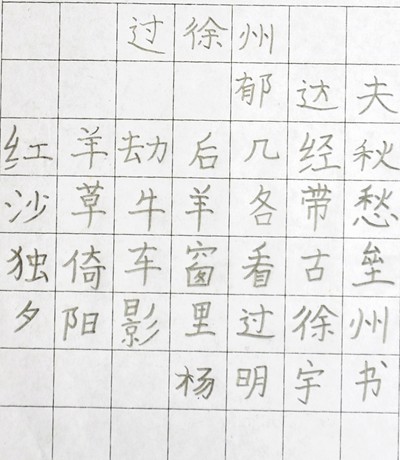 过徐州
郁达夫
红羊劫后几经秋
沙草牛羊各带愁
独倚车窗看古垒
夕阳影里过徐州
杨明宇书